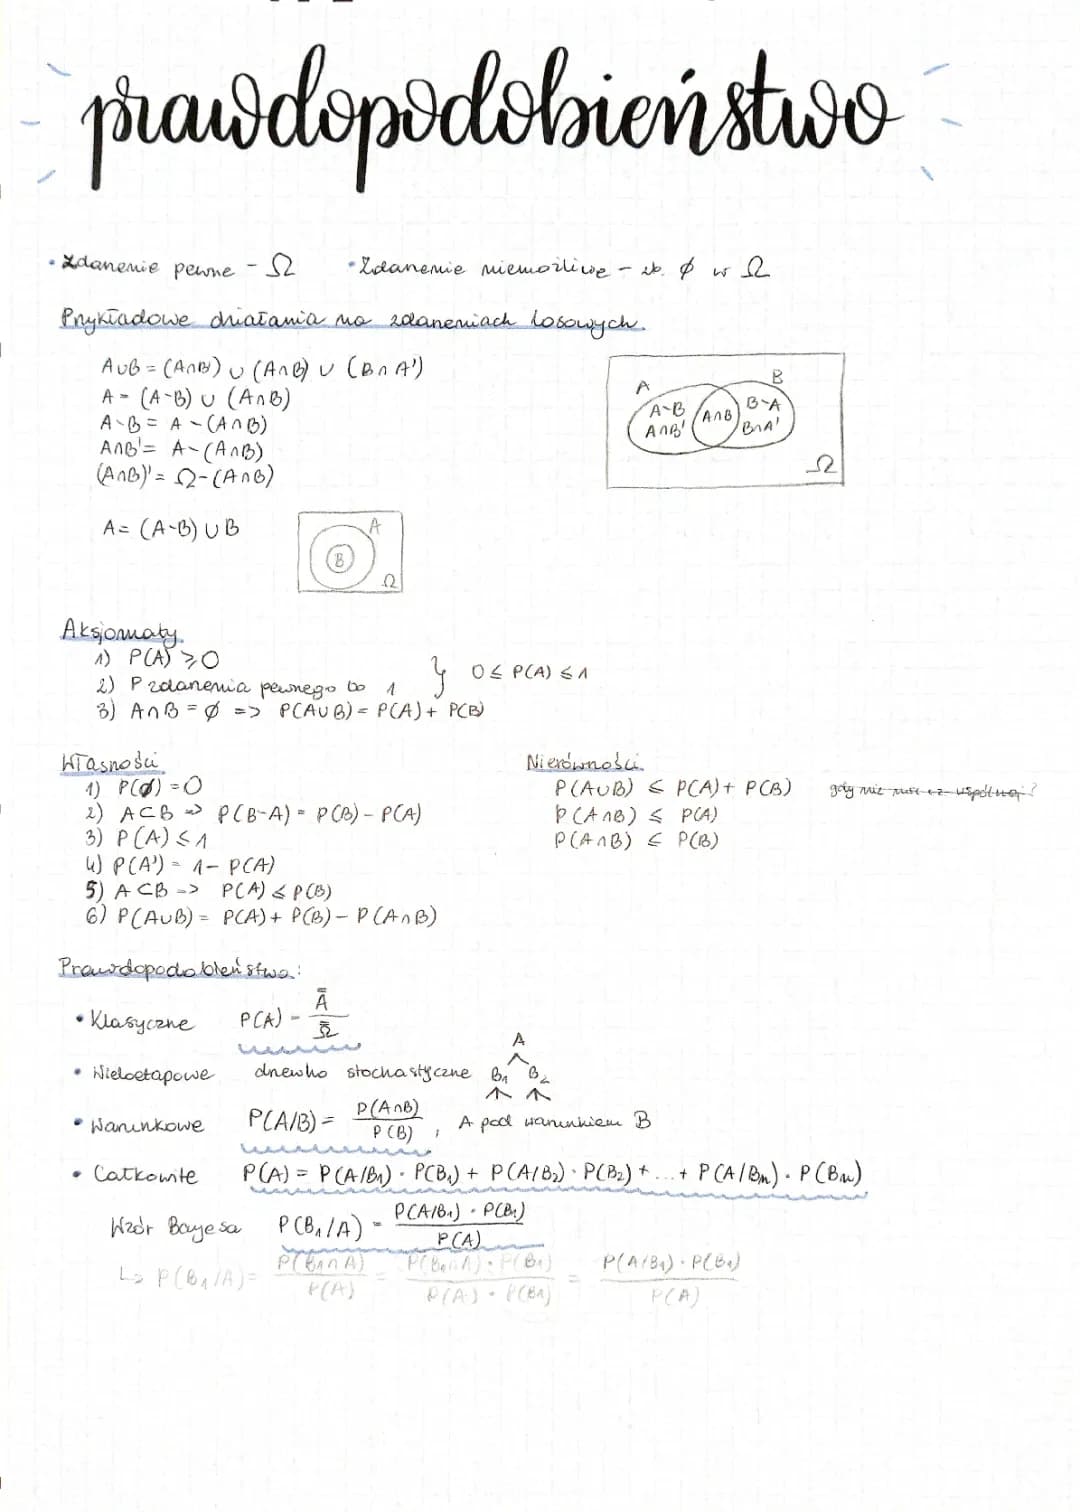 prawdopodobieństwo
• Zdarzenie pewne - Ω • Zdarzenie niemożliwe - zb. ∅ w Ω
Przykładowe działania na zdarzeniach losowych.
A∪B = (A∩B') ∪ (A∩B) ∪ (B∩A')
A = (A-B) ∪ (A∩B)
A-B = A - (A∩B)
A∩B' = A-(A∩B)
(A∩B)' = Ω-(A∩B)
A
B
A-B
A∩B'
A∩B
B-A
B∩A'
Ω
A = (A-B) ∪ B
A
B
Ω
Aksjomaty.
1) P(A) ≥ 0
2) P zdarzenia pewnego to 1 } 0 ≤ P(A) ≤ 1
3) A∩B = ∅ => P(A∪B) = P(A) + P(B)
Własności.
1) P(∅) = 0
2) A⊂B => P(B-A) = P(B) - P(A)
3) P(A) ≤ 1
4) P(A') = 1 - P(A)
5) A⊂B => P(A) ≤ P(B)
6) P(A∪B) = P(A) + P(B) - P(A∩B)
Nierówności.
P(A∪B) ≤ P(A) + P(B) gdy nie cz. wspólnej?
P(A∩B) ≤ P(A)
P(A∩B) ≤ P(B)
Prawdopodobieństwa:
• Klasyczne P(A) = A̿ / Ω̿
• Wieloetapowe drzewko stochastyczne A B₁ B₂
• Warunkowe P(A/B) = P(A∩B) / P(B) , A pod warunkiem B
• Całkowite P(A) = P(A/B₁) · P(B₁) + P(A/B₂) · P(B₂) + ... + P(A/Bn) · P(Bn)
Wzór Bayesa P(B₁/A) = P(A/B₁) · P(B₁) / P(A)
↳ P(B₁/A) = P(B₁∩A) / P(A) = P(B₁∩A) · P(B₁) / P(A) · P(B₁) = P(A/B₁) · P(B₁) / P(A)